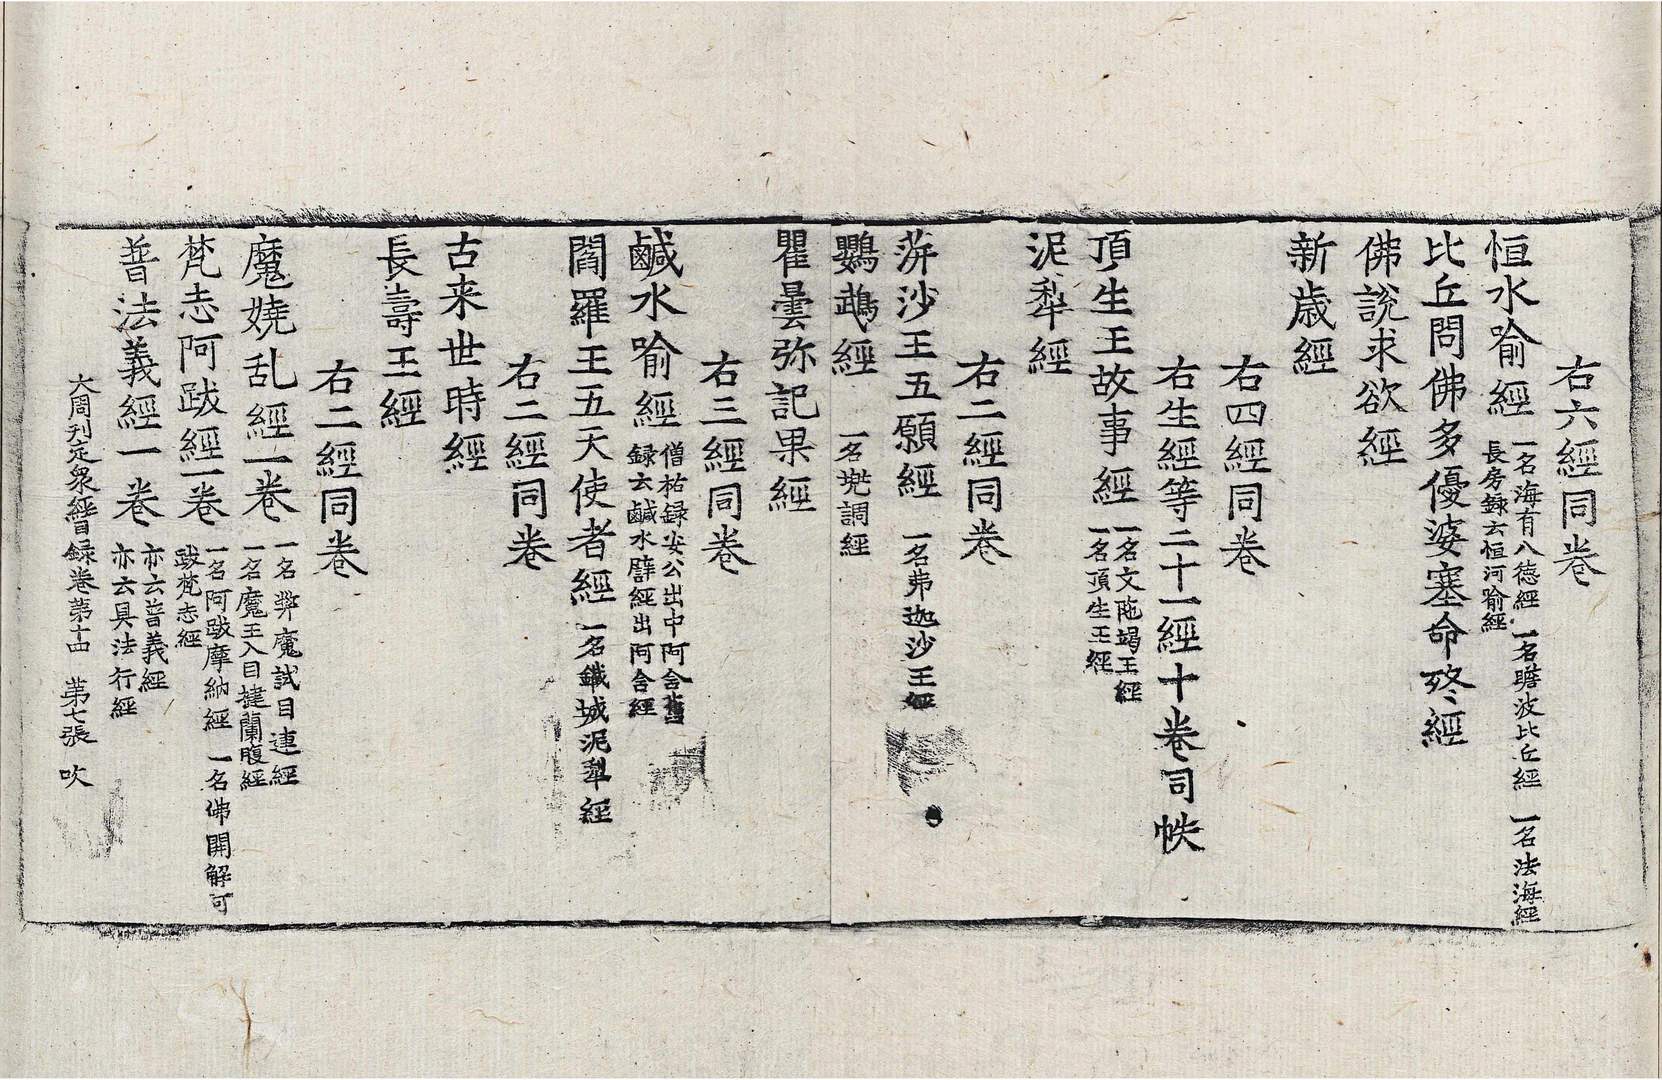 右六經同卷
恒水喻經 一名海有八德經 一名瞻波比丘經 一名法海經
長房録云恒河喻經
比丘問佛多優婆塞命終經
佛說求欲經
新歳經
右四經同卷
右生經等二十一經十卷同帙
頂生王故事經 一名文陁竭王經
一名頂生王經
泥犂經
右二經同卷
蓱沙王五願經 一名弗迦沙王經
鸚鵡經 一名兠調經
瞿曇弥記果經
右三經同卷
鹹水喻經 僧祐録安公出中阿含舊
録云鹹水譬經出阿含經
閻羅王五天使者經 一名鐵城泥犂經
右二經同卷
古来世時經
長壽王經
右二經同卷
魔嬈乱經一卷 一名弊魔試目連經
一名魔王入目揵蘭腹經
梵志阿跋經一卷 一名阿跋摩納經 一名佛開解可
跋梵志經
普法義經一卷 亦云普義經
亦云具法行經
大周刊定衆經目録卷第十四 第七張 吹